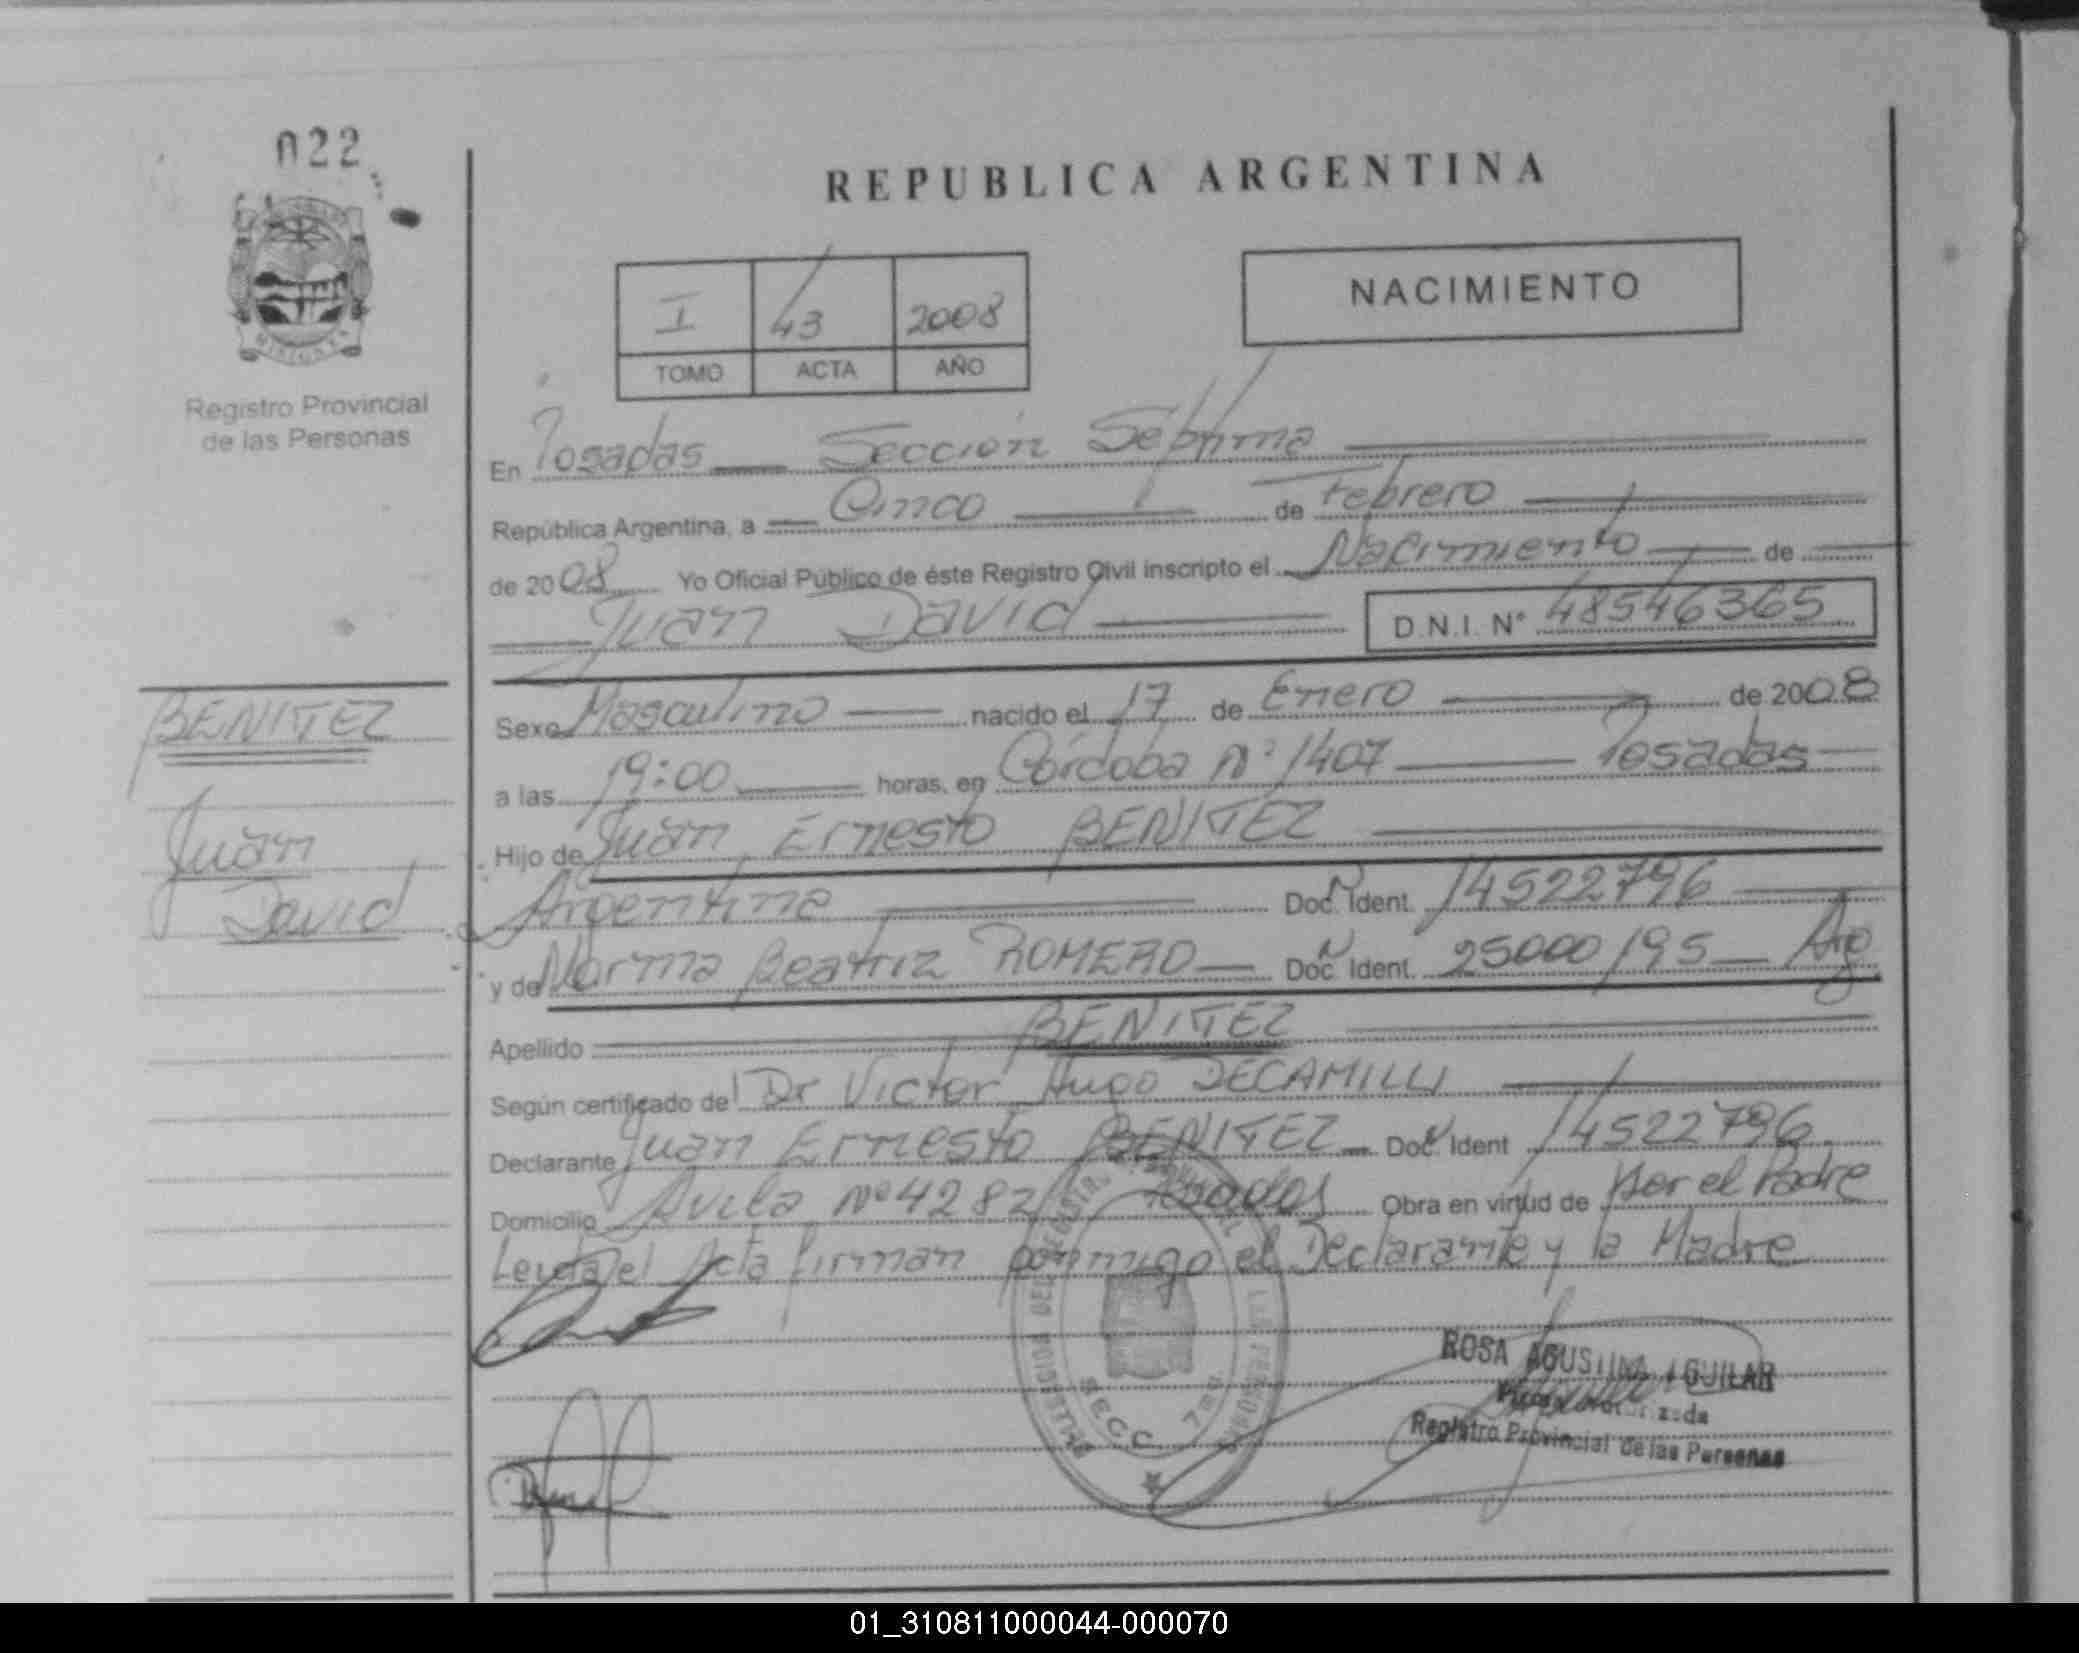 022
MISIONES
Registro Provincial
de las Personas
REPUBLICA ARGENTINA
I 43 2008
TOMO ACTA AÑO
NACIMIENTO
En Posadas Sección Séptima
República Argentina, a Cinco de Febrero
de 2008 Yo Oficial Público de éste Registro Civil inscripto el Nacimiento de
Juan David D.N.I. N° 48546365
BENITEZ
Juan
David
Sexo Masculino nacido el 17 de Enero de 2008
a las 19:00 horas, en Córdoba Nº 1407 Posadas
Hijo de Juan Ernesto BENITEZ
Argentina Doc. Ident. 14522796
y de Norma Beatriz ROMERO Doc. Ident. 25000195 Arg
Apellido BENITEZ
Según certificado del Dr Victor Hugo DECAMILLI
Declarante Juan Ernesto BENITEZ Doc. Ident 14522796
Domicilio Avila Nº 4282 Posadas Obra en virtud de Ser el Padre
Leida el Acta firman conmigo el Declarante y la Madre
SECC. 7ma
ROSA AGUSTINA AGUILAR
Registro Provincial de las Personas
01_310811000044-000070